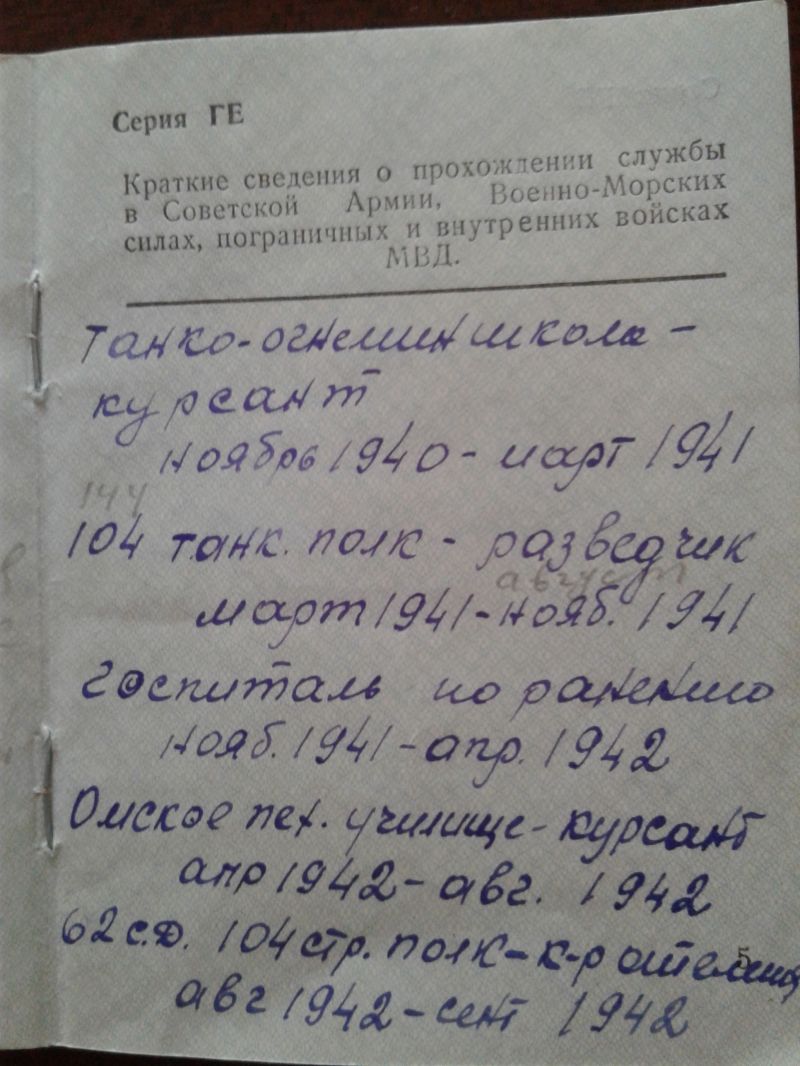 Серия ГЕ
Краткие сведения о прохождении службы
в Советской Армии, Военно-Морских
силах, пограничных и внутренних войсках
МВД.
Танко-огнемин школа –
курсант
ноябрь 1940 – март 1941
144
104 танк. полк – разведчик
август
март 1941 – нояб. 1941
госпиталь по ранению
нояб. 1941 – апр. 1942
Омское пех. училище – курсант
апр 1942 – авг. 1942
62 с.д. 104 стр. полк – к-р отделения
авг 1942 – сент 1942
5